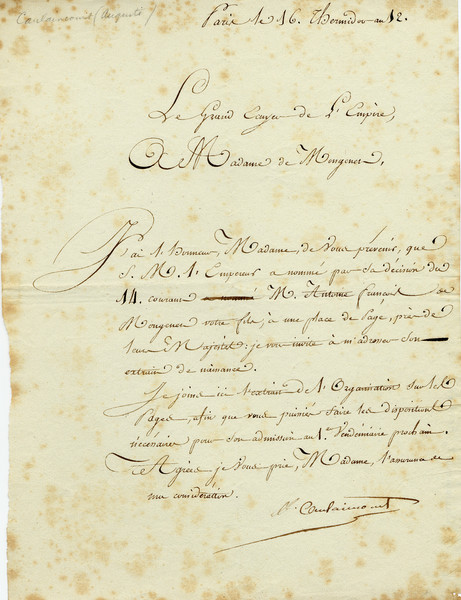 Caulaincourt (Auguste)
Paris le 16. Thermidor an 12.
Le Grand Ecuyer de L'Empire,
A Madame de Mongenet.
J'ai l'honneur, Madame, de vous prévenir, que
S. M. l'Empereur a nommé par sa décision du
14. courant M. Antoine français de
Mongenet votre fils, à une place de Page, près de
leurs Majestés: je vous invite à m'adresser son
extrait de naissance.
Je joins ici l'extrait de l'Organisation sur les
Pages, afin que vous puissiez faire les dispositions
nécessaires pour son admission au 1er. Vendémiaire prochain.
Agréez je vous prie, Madame, l'assurance de
ma considération.
Caulaincourt